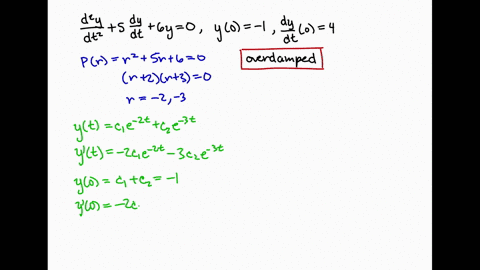 d²y/dt² + 5 dy/dt + 6y = 0 , y(0) = -1 , dy/dt (0) = 4
P(r) = r² + 5r + 6 = 0
overdamped
(r+2)(r+3) = 0
r = -2, -3
y(t) = c₁e^{-2t} + c₂e^{-3t}
y'(t) = -2c₁e^{-2t} - 3c₂e^{-3t}
y(0) = c₁ + c₂ = -1
y'(0) = -2c